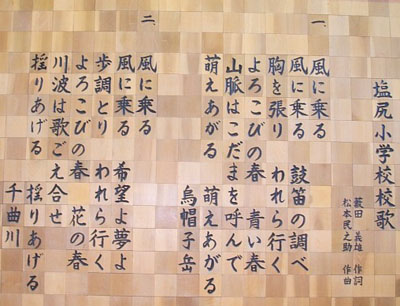 塩尻小学校校歌
薮田 義雄 作詞
松本民之助 作曲
一、
風に乗る
風に乗る 鼓笛の調べ
胸を張り われら行く
よろこびの春 青い春
山脈はこだまを呼んで
萌えあがる 萌えあがる
烏帽子岳
二、
風に乗る
風に乗る 希望よ夢よ
歩調とり われら行く
よろこびの春 花の春
川波は歌ごえ合せ
揺りあげる 揺りあげる
千曲川